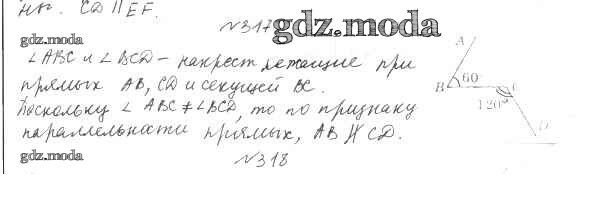 нк. CD || EF.
№317
gdz.moda
gdz.moda
∠ABC и ∠BCD - накрест лежащие при
прямых AB, CD и секущей BC.
Поскольку ∠ABC ≠ ∠BCD, то по признаку
параллельности прямых, AB ∦ CD.
A
B 60 C
120°
D
gdz.moda
№318